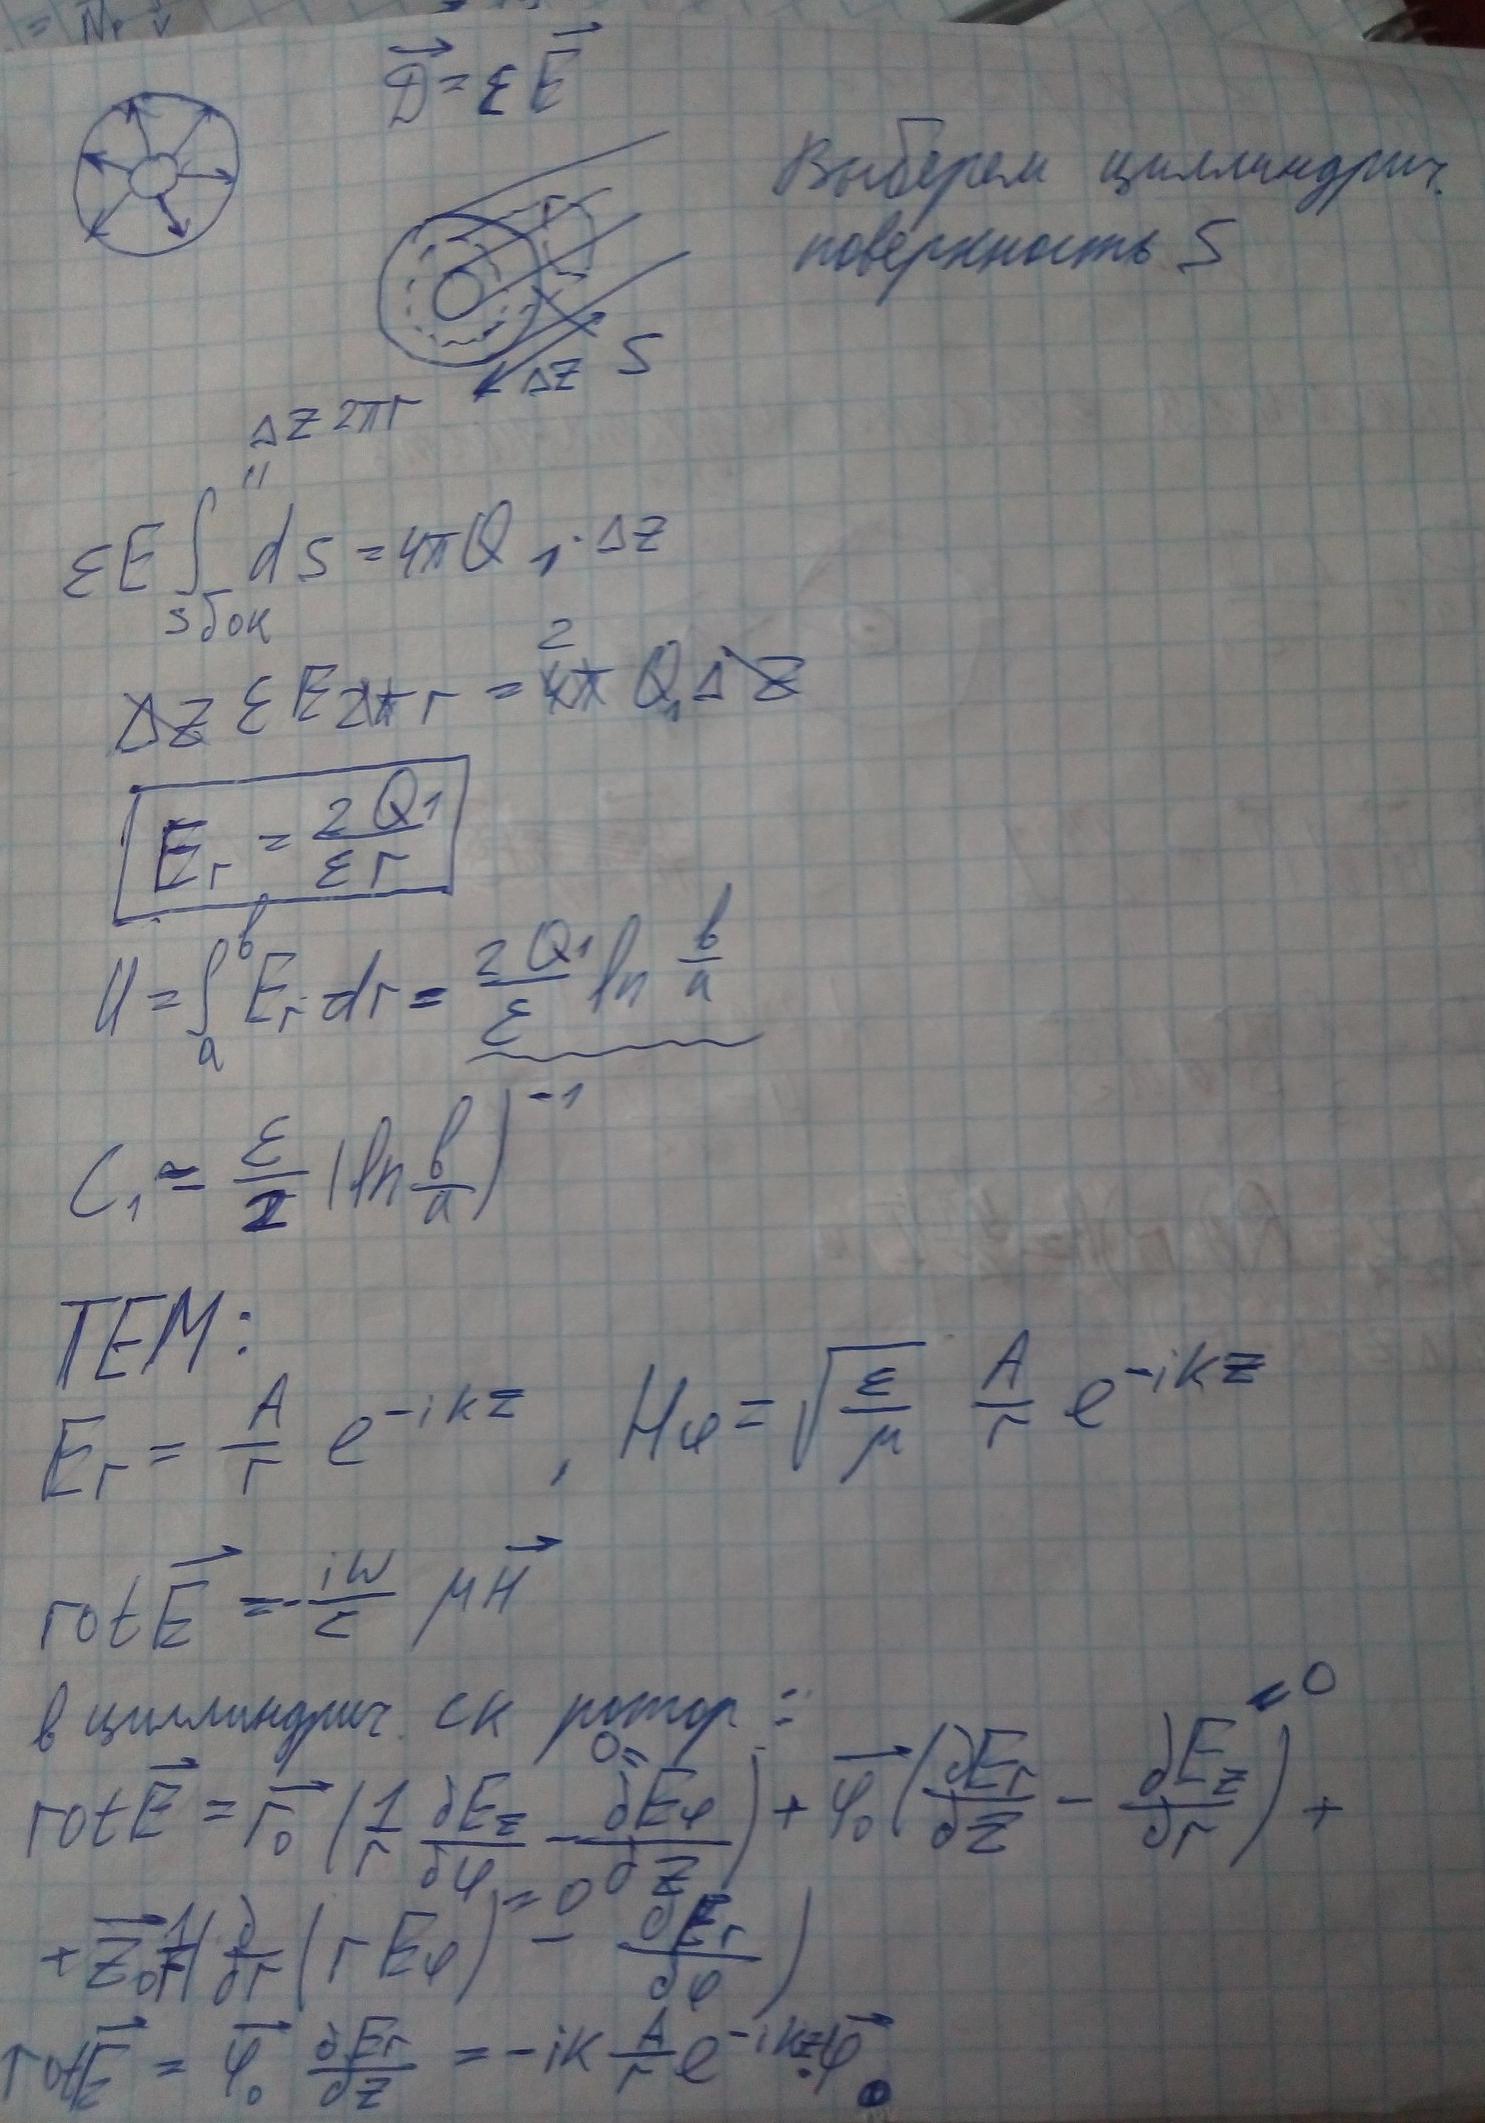 = Nr
D⃗ = εE⃗
Выберем циллиндрич.
поверхность S
Δz S
Δz 2πr
"
εE ∫_{Sбок} ds = 4πQ₁·Δz
2
Δz εE 2πr = 4πQ₁Δz
E_r = 2Q₁/(εr)
U = ∫_a^b E_r dr = (2Q₁/ε) ln (b/a)
C₁ ≃ (ε/2) (ln b/a)^{-1}
TEM:
E_r = (A/r) e^{-ikz}, H_φ = √(ε/μ) (A/r) e^{-ikz}
rot E⃗ = -(iω/c) μH⃗
в циллиндрич. ск ротор :
rot E⃗ = r⃗₀ ( (1/r) ∂E_z/∂φ - ∂E_φ/∂z ) + φ⃗₀ ( ∂E_r/∂z - ∂E_z/∂r ) +
0= =0 =0
+ z⃗₀ (1/r) ( ∂/∂r (rE_φ) - ∂E_r/∂φ )
rot E⃗ = φ⃗₀ ∂E_r/∂z = -ik (A/r) e^{-ikz} · φ⃗₀